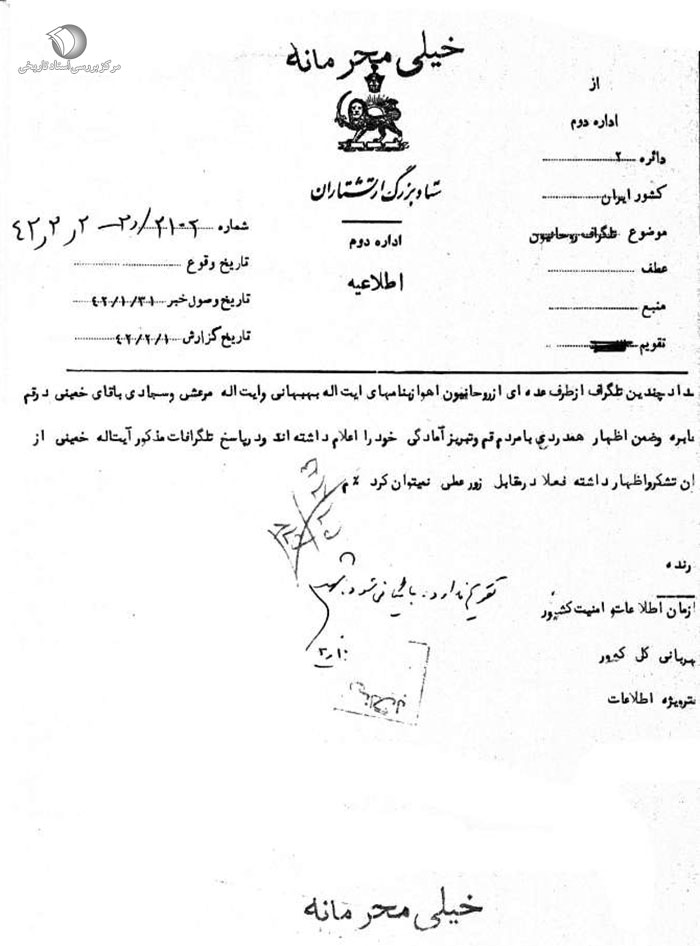 مرکز بررسی اسناد تاریخی
خیلی محرمانه
از
اداره دوم
دائره ۲
کشور ایران
موضوع تلگراف روحانیون
عطف
منبع
تقویم
ستاد بزرگ ارتشتاران
اداره دوم
اطلاعیه
شماره ۲۱۰۲
تاریخ وقوع
تاریخ وصول خبر ۴۲/۱/۳۱
تاریخ گزارش ۴۲/۲/۱
داد چندین تلگراف از طرف عده ای از روحانیون اهواز بنامهای ایت اله بهبهانی وایت اله مرعشی وسجادی باقای خمینی درقم
ابره وضمن اظهار همدردی بامردم قم وتبریز آمادگی خود را اعلام داشته اند ودرپاسخ تلگرافات مذکور آیت اله خمینی از
ان تشکرواظهار داشته فعلا درمقابل زور عملی نمیتوان کرد
رنده
ازمان اطلاعات و امنیت کشور
هربانی کل کشور
فترویژه اطلاعات
تقویم ندارد.
خیلی محرمانه